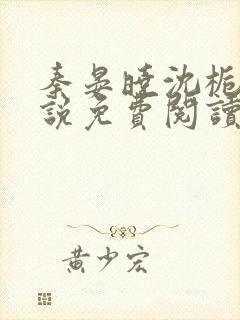 秦晏曉沈栀
說免費閱讀
黃少宏